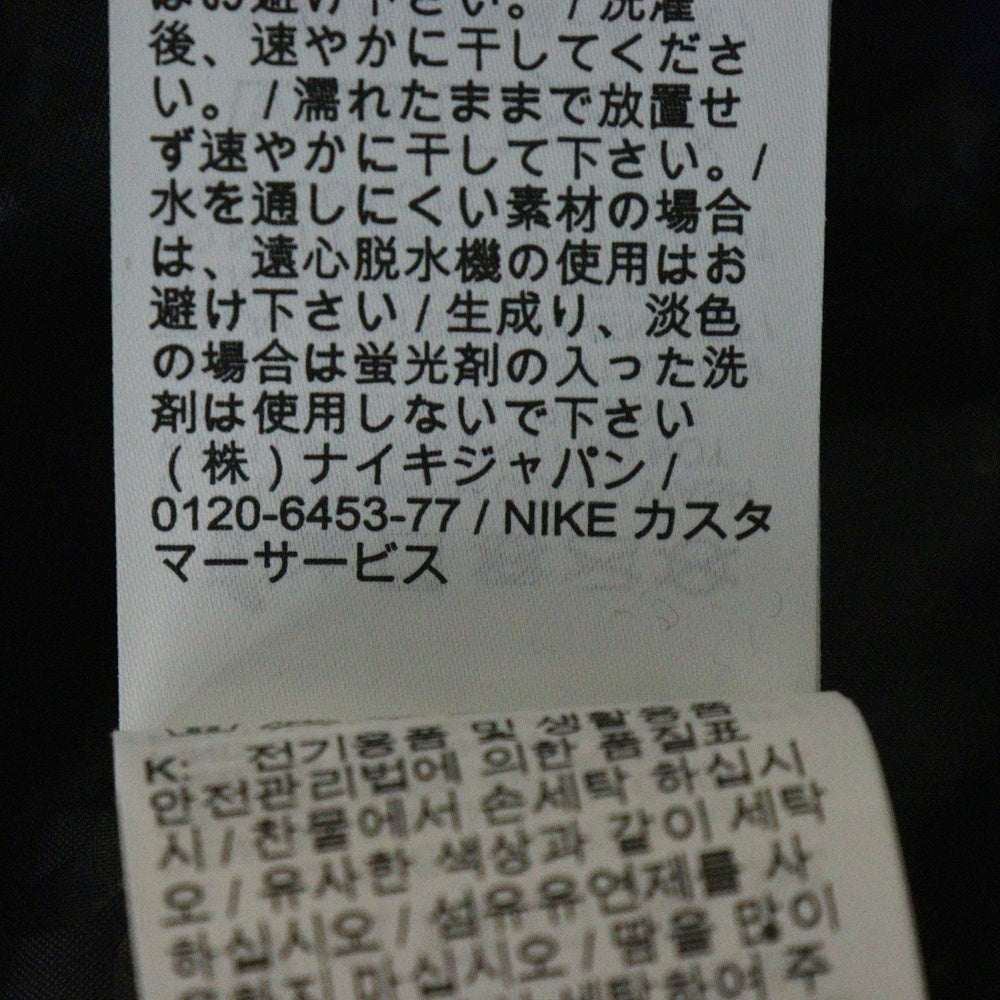 はお避け下さい。 / 洗濯
後、速やかに干してくださ
い。 / 濡れたままで放置せ
ず速やかに干して下さい。 /
水を通しにくい素材の場合
は、遠心脱水機の使用はお
避け下さい / 生成り、淡色
の場合は蛍光剤の入った洗
剤は使用しないで下さい
（株）ナイキジャパン /
0120-6453-77 / NIKE カスタ
マーサービス
K: 전기용품 및 생활용품
안전관리법에 의한 품질표
시 / 찬물에서 손세탁 하십시
오 / 유사한 색상과 같이 세탁
하십시오 / 섬유유연제를 사
마십시오 / 땀을 많이
세탁하여 주